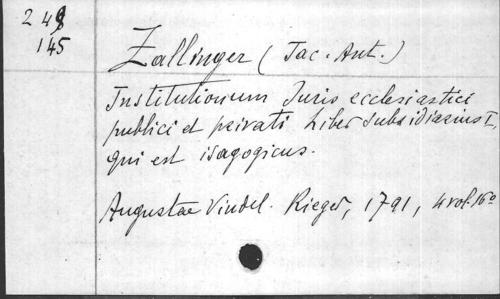 248
145
Zallinger (Jac. Ant.)
Institutionum Juris ecclesiastici
publici et privati Liber subsidiarius I,
qui est isagogicus.
Augustae Vindel. Rieger, 1791, 4 vol. 16º